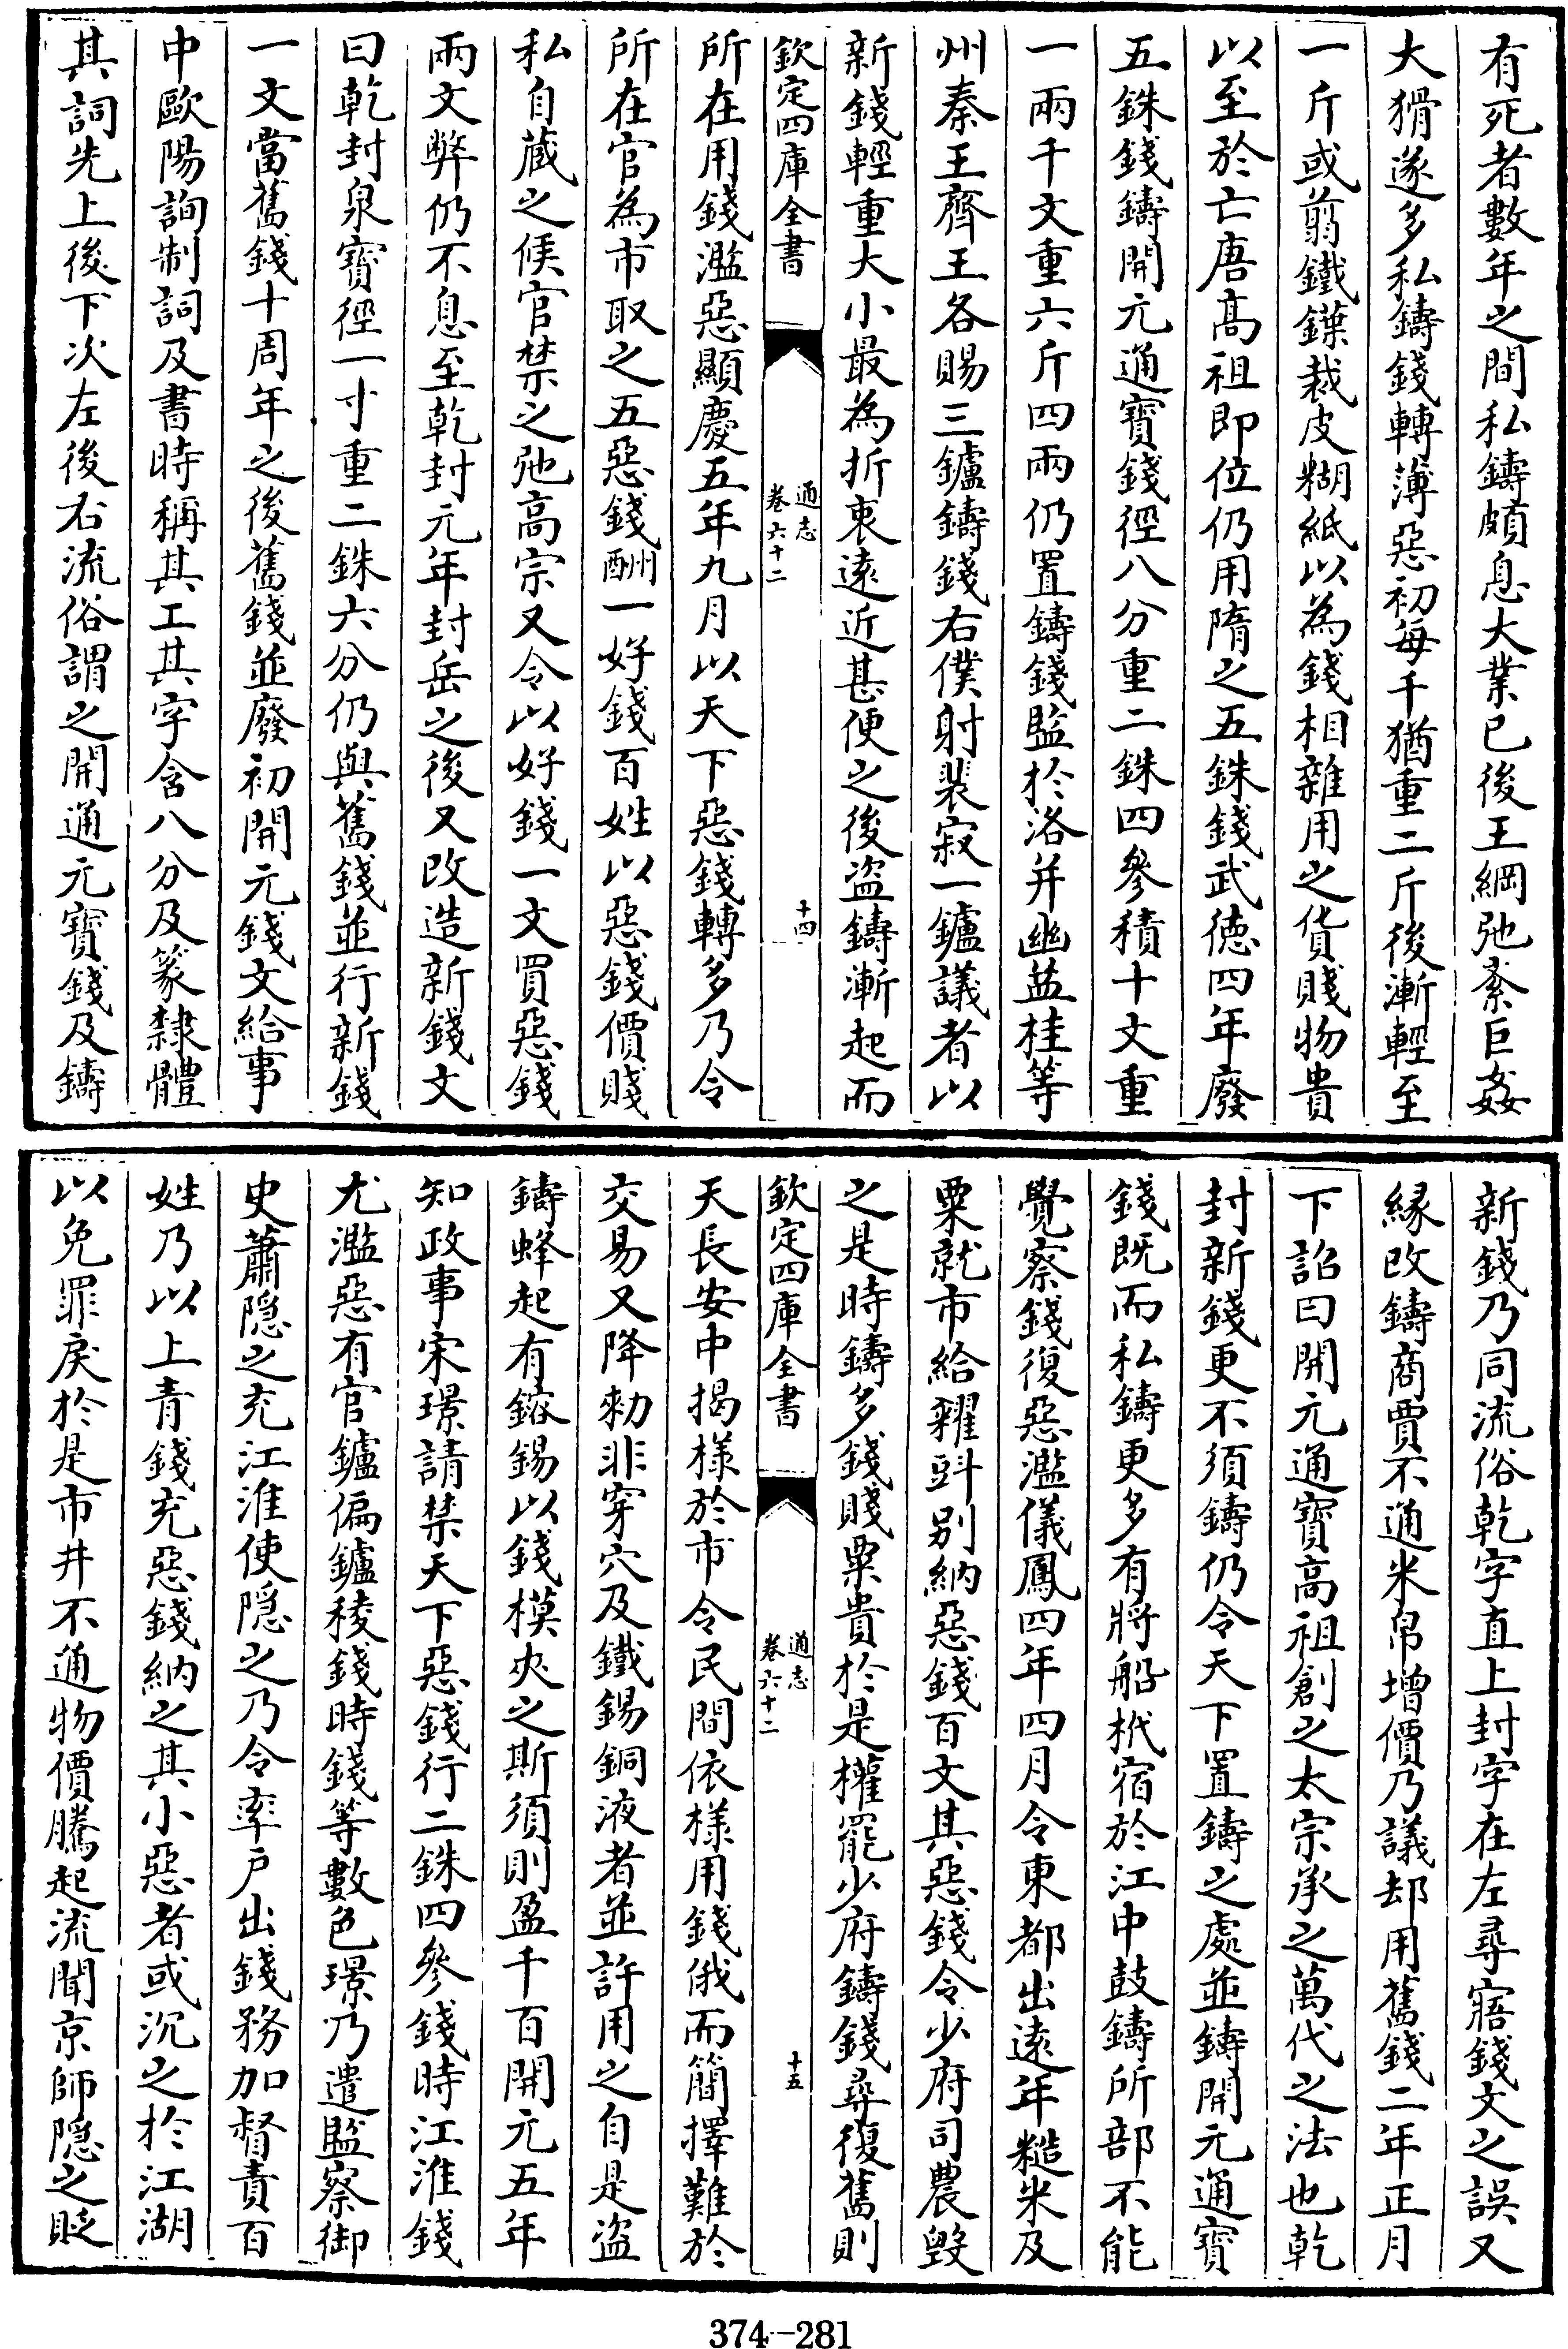 有死者數年之間私鑄頗息大業已後王綱弛紊巨姦
大猾遂多私鑄錢轉薄惡初每千猶重二斤後漸輕至
一斤或翦鐵鍱裁皮糊紙以為錢相雜用之貨賤物貴
以至於亡唐髙祖即位仍用隋之五銖錢武徳四年廢
五銖錢鑄開元通寶錢徑八分重二銖四參積十文重
一兩千文重六斤四兩仍置鑄錢監於洛并幽益桂等
州秦王齊王各賜三鑪鑄錢右僕射裴寂一鑪議者以
新錢輕重大小最為折衷遠近甚便之後盜鑄漸起而
欽定四庫全書
通志
卷六十二
十四
所在用錢濫惡顯慶五年九月以天下惡錢轉多乃令
所在官為市取之五惡錢酬一好錢百姓以惡錢價賤
私自藏之候官禁之弛高宗又令以好錢一文買惡錢
兩文弊仍不息至乾封元年封岳之後又改造新錢文
曰乾封泉寶徑一寸重二銖六分仍與舊錢並行新錢
一文當舊錢十周年之後舊錢並廢初開元錢文給事
中歐陽詢制詞及書時稱其工其字含八分及篆隸體
其詞先上後下次左後右流俗謂之開通元寶錢及鑄
新錢乃同流俗乾字直上封字在左尋寤錢文之誤又
縁改鑄商賈不通米帛增價乃議却用舊錢二年正月
下詔曰開元通寶高祖創之太宗承之萬代之法也乾
封新錢更不須鑄仍令天下置鑄之處並鑄開元通寶
錢既而私鑄更多有將船栰宿於江中鼓鑄所部不能
覺察錢復惡濫儀鳳四年四月令東都出遠年糙米及
粟就市給糶㪷别納惡錢百文其惡錢令少府司農毀
之是時鑄多錢賤粟貴於是權罷少府鑄錢尋復舊則
欽定四庫全書
通志
卷六十二
十五
天長安中揭様於市令民間依樣用錢俄而簡擇難於
交易又降勑非穿穴及鐵錫銅液者並許用之自是盜
鑄蜂起有鎔錫以錢模夾之斯須則盈千百開元五年
知政事宋璟請禁天下惡錢行二銖四參錢時江淮錢
尤濫惡有官鑪偏鑪稜錢時錢等數色璟乃遣監察御
史蕭隠之充江淮使隠之乃令率戶出錢務加督責百
姓乃以上青錢充惡錢納之其小惡者或沉之於江湖
以免罪戾於是市井不通物價騰起流聞京師隠之貶
374-281